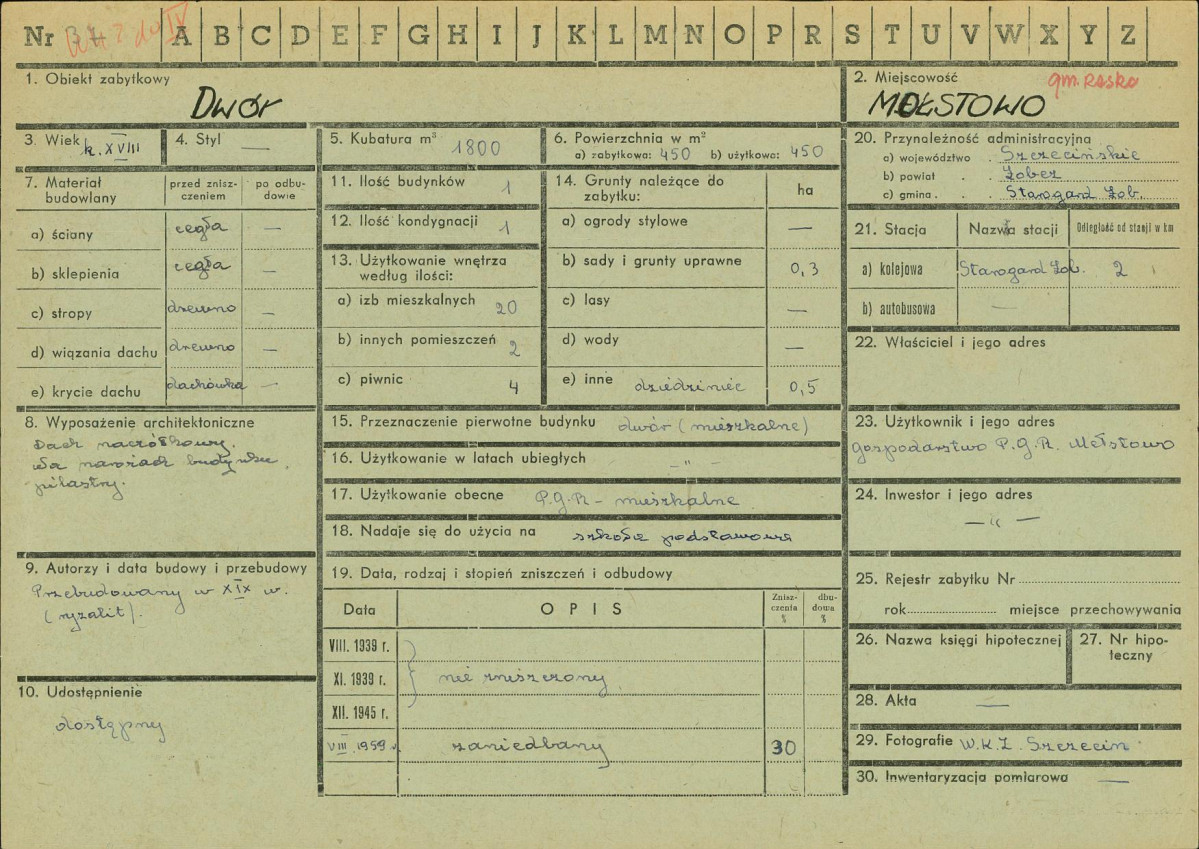 Nr 34 A B C D E F G H I J K L M N O P R S T U V W X Y Z
do IV
1. Obiekt zabytkowy
DWÓR
2. Miejscowość
gm. Resko
MEŁSTOWO
3. Wiek k. XVIII
4. Styl —
5. Kubatura m³ 1800
6. Powierzchnia w m²
a) zabytkowa: 450 b) użytkowa: 450
7. Materiał budowlany
przed znisz-
czeniem
po odbu-
dowie
a) ściany cegła —
b) sklepienia cegła —
c) stropy drzewno —
d) wiązania dachu drzewno —
e) krycie dachu dachówka —
8. Wyposażenie architektoniczne
Dach naczółkowy.
Na narożach budynku
pilastry.
9. Autorzy i data budowy i przebudowy
Przebudowany w XIX w.
(ryzalit).
10. Udostępnienie
dostępny
11. Ilość budynków 1
12. Ilość kondygnacji 1
13. Użytkowanie wnętrza
według ilości:
a) izb mieszkalnych 20
b) innych pomieszczeń 2
c) piwnic 4
14. Grunty należące do
zabytku:
ha
a) ogrody stylowe —
b) sady i grunty uprawne 0,3
c) lasy —
d) wody —
e) inne dziedziniec 0,5
15. Przeznaczenie pierwotne budynku dwór (mieszkalne)
16. Użytkowanie w latach ubiegłych -"-
17. Użytkowanie obecne P.G.R – mieszkalne
18. Nadaje się do użycia na szkołę podstawową
19. Data, rodzaj i stopień zniszczeń i odbudowy
Data
OPIS
Znisz-
czenia
%
dbu-
dowa
%
VIII. 1939 r.
XI. 1939 r. nie zniszczony
XII. 1945 r.
VIII 1959 r. zaniedbany 30
20. Przynależność administracyjna
a) województwo . Szczecińskie
b) powiat . . Łobez
c) gmina . . . Starogard Łob.
21. Stacja
Nazwa stacji
Odległość od stacji w km
a) kolejowa Starogard Łob. 2
b) autobusowa —
22. Właściciel i jego adres
23. Użytkownik i jego adres
Gospodarstwo P.G.R. Mełstowo
24. Inwestor i jego adres
— " —
25. Rejestr zabytku Nr
rok miejsce przechowywania
26. Nazwa księgi hipotecznej
27. Nr hipo-
teczny
28. Akta —
29. Fotografie W.K.Z. Szczecin
30. Inwentaryzacja pomiarowa —